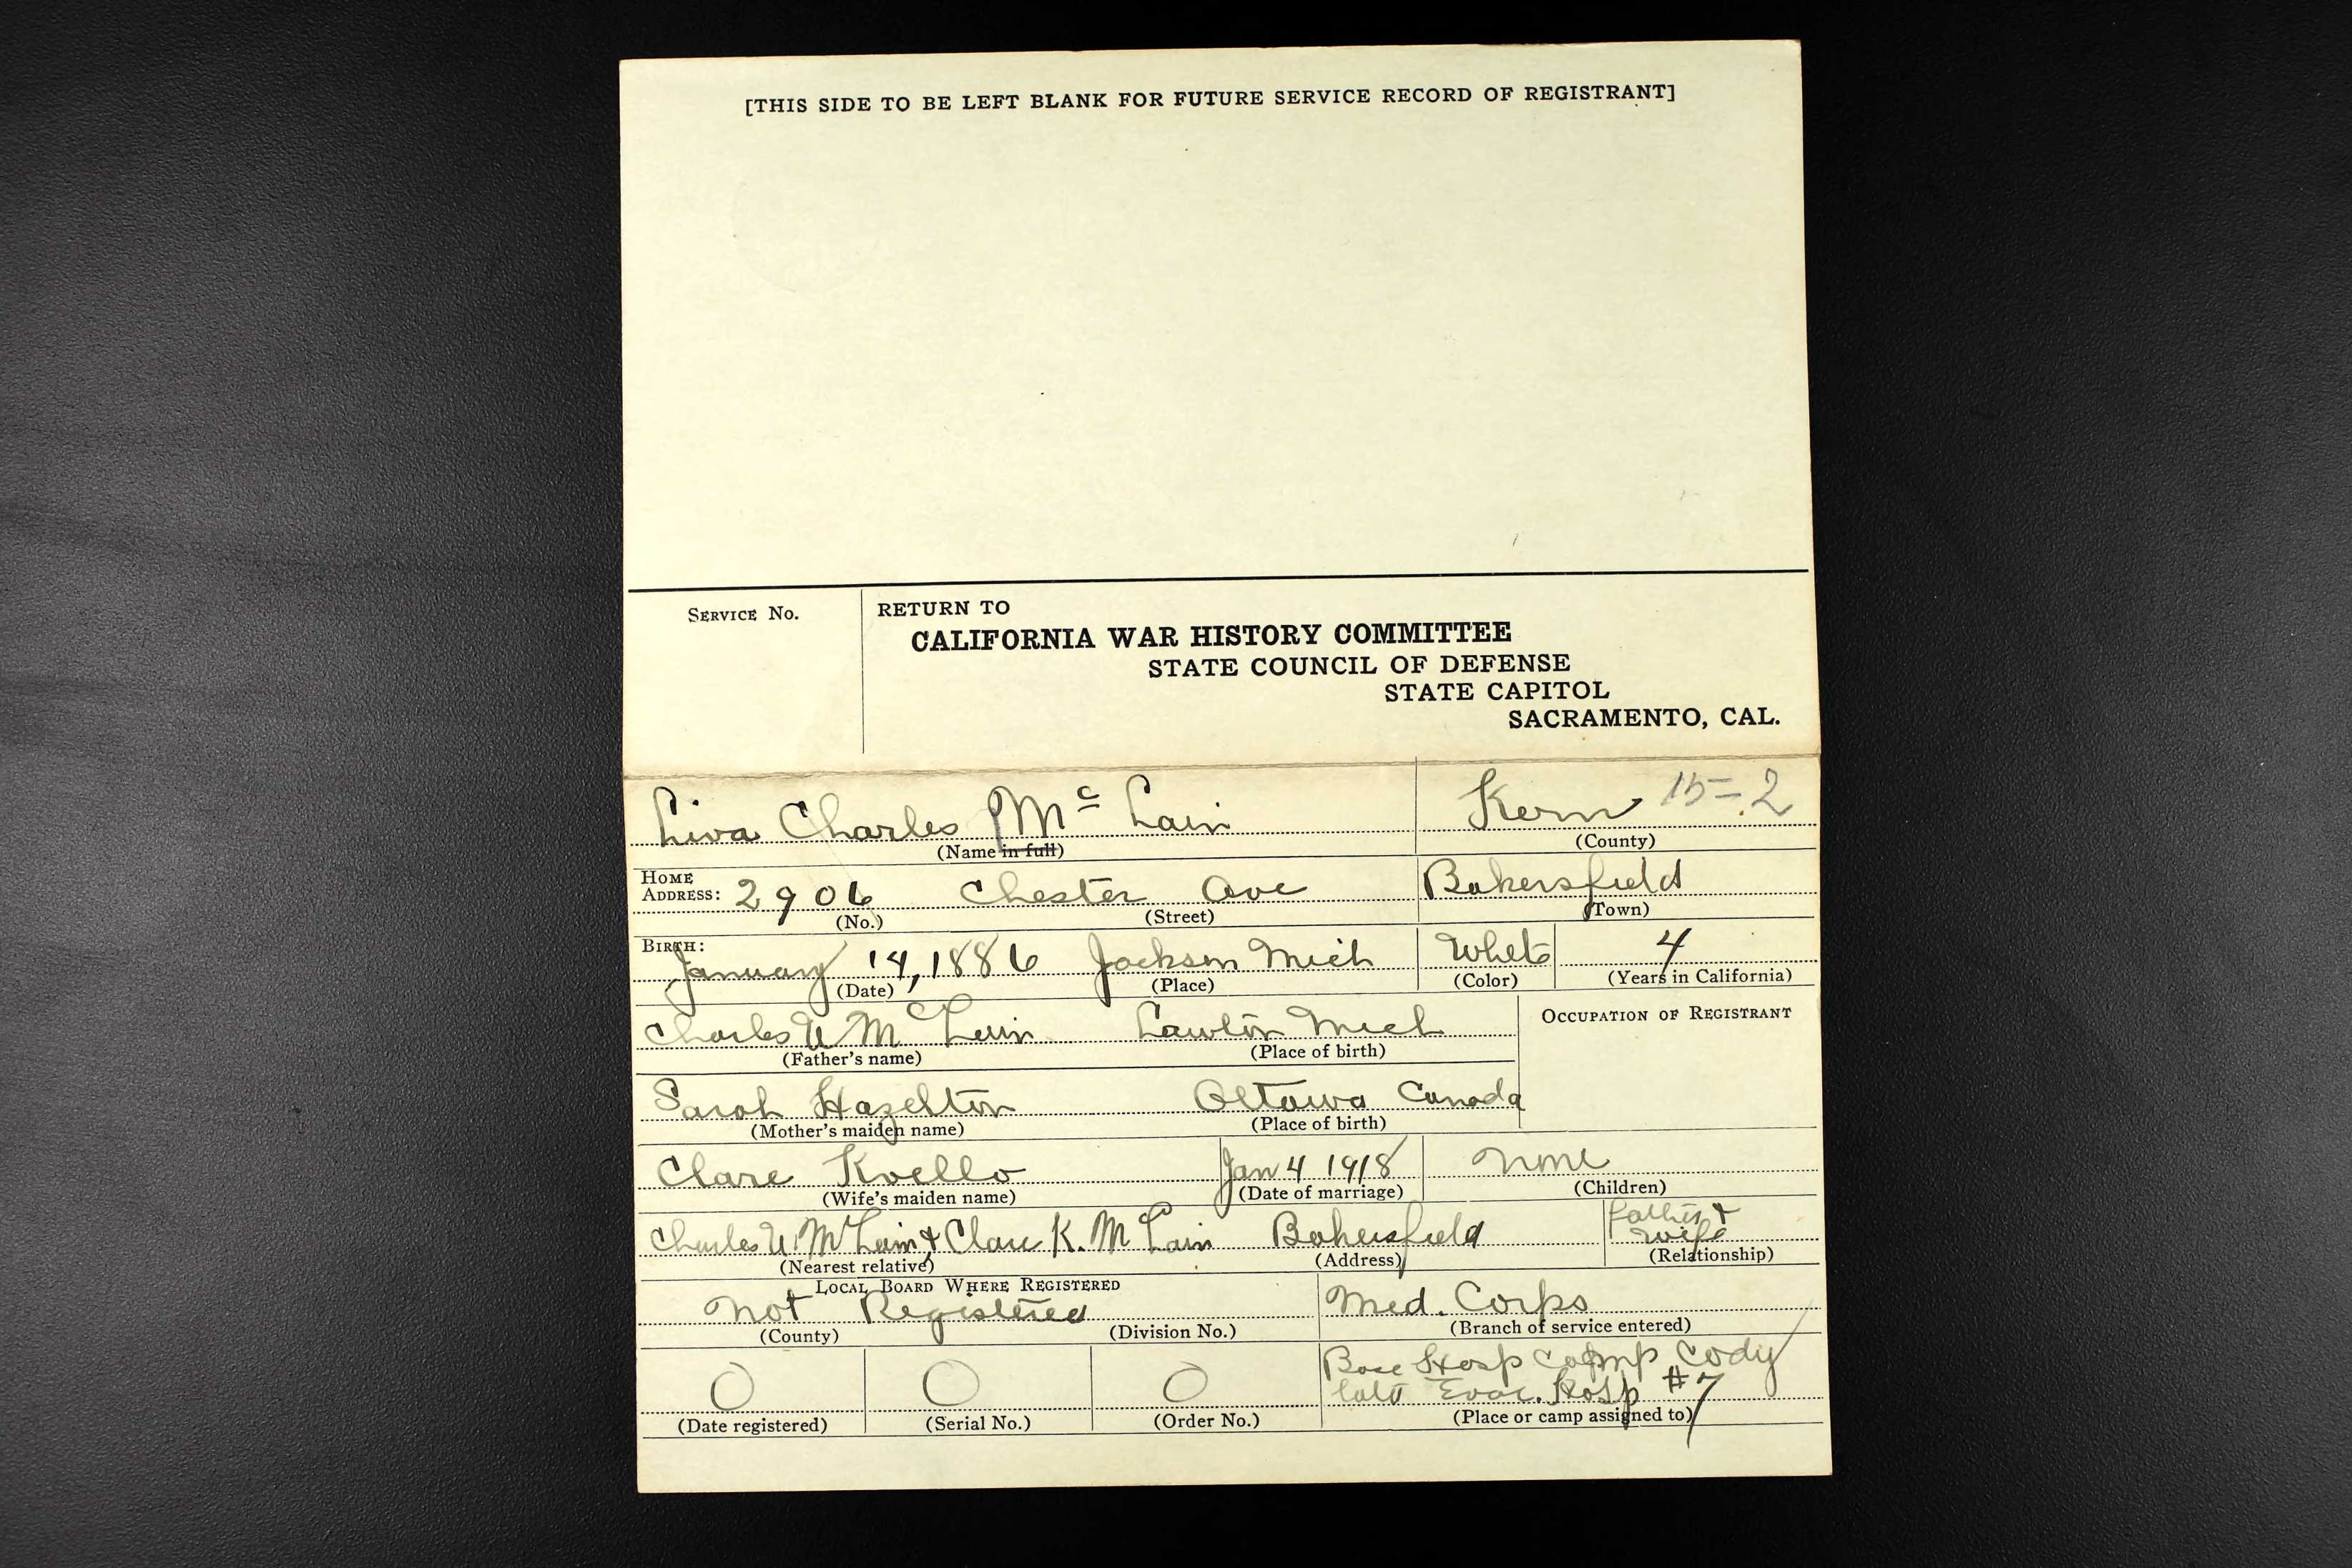 [THIS SIDE TO BE LEFT BLANK FOR FUTURE SERVICE RECORD OF REGISTRANT]
SERVICE NO.
RETURN TO
CALIFORNIA WAR HISTORY COMMITTEE
STATE COUNCIL OF DEFENSE
STATE CAPITOL
SACRAMENTO, CAL.
Liva Charles Mc Lain Kern 15-2
(Name in full) (County)
HOME ADDRESS: 2906 Chester Ave Bakersfield
(No.) (Street) (Town)
BIRTH: January 14, 1886 Jackson Mich White 4
(Date) (Place) (Color) (Years in California)
Charles W Mc Lain Lawton Mich OCCUPATION OF REGISTRANT
(Father's name) (Place of birth)
Sarah Hazelton Ottawa Canada
(Mother's maiden name) (Place of birth)
Clare Kvello Jan 4 1918 none
(Wife's maiden name) (Date of marriage) (Children)
Charles W. Mc Lain & Clare K. Mc Lain Bakersfield Father & Wife
(Nearest relative) (Address) (Relationship)
LOCAL BOARD WHERE REGISTERED
Not Registered Med. Corps
(County) (Division No.) (Branch of service entered)
Base Hosp Camp Cody
0 0 0 Evac. Hosp #7
(Date registered) (Serial No.) (Order No.) (Place or camp assigned to)